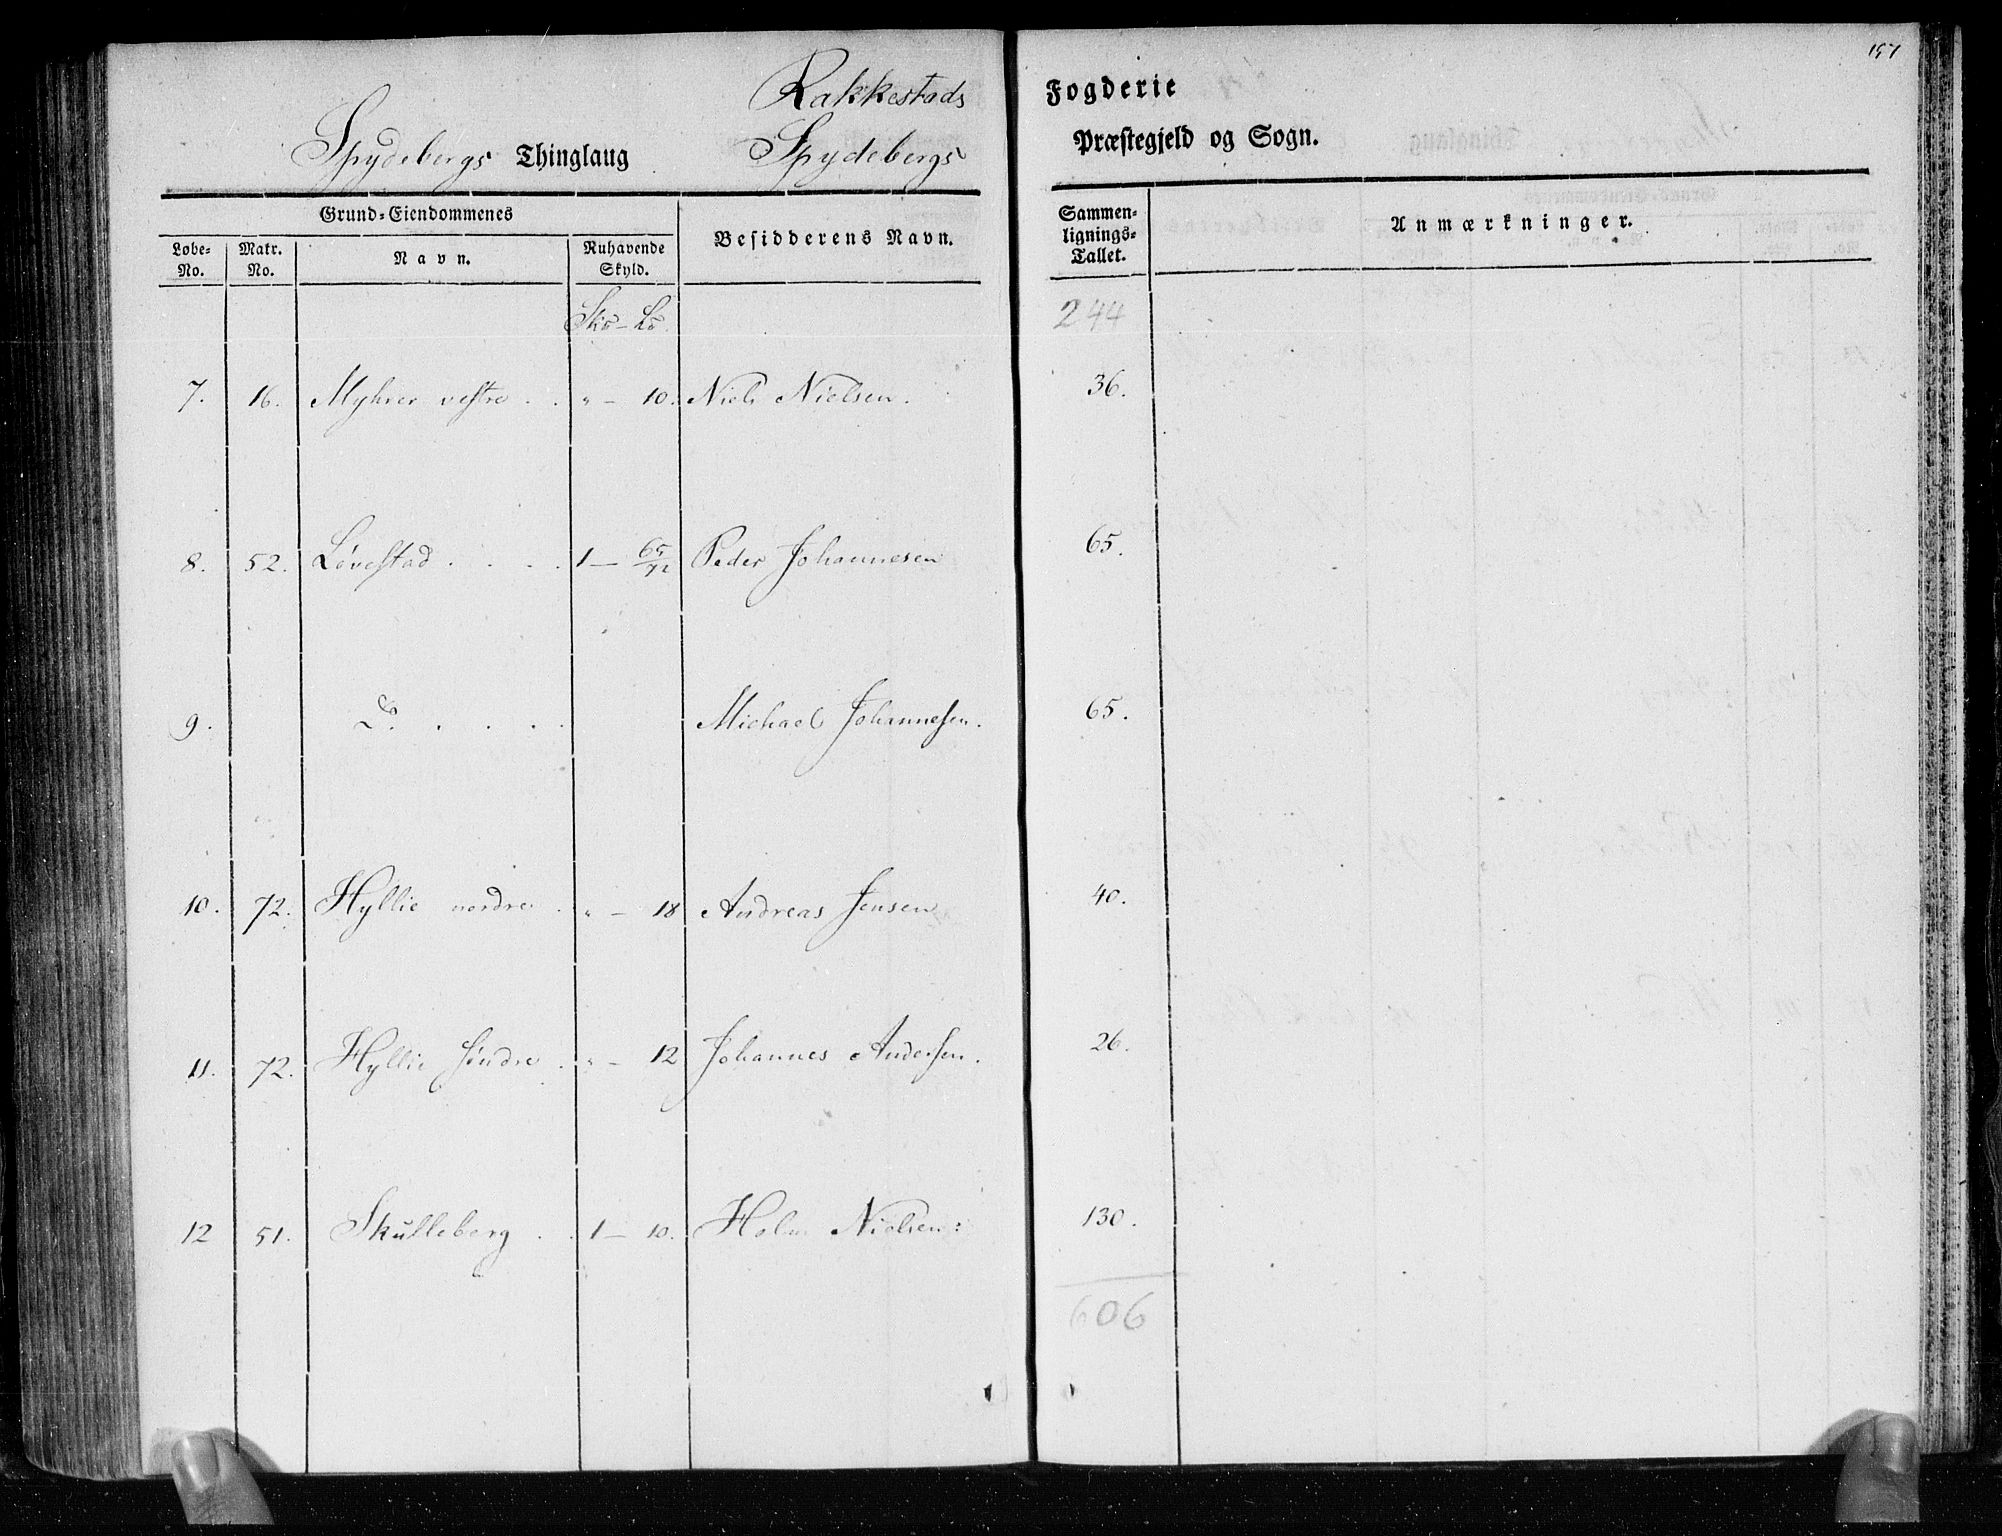 197
Rakkestads Fogderie
Spydebergs Thinglaug Spydebergs Præstegjeld og Sogn.
Grund-Eiendommenes
Løbe-No. Matr. No. Navn. Ruhavende Skyld. Besidderens Navn. Sammenlignings-Tallet. Anmærkninger.
Skð – Lð. 244
7. 16. Myhrer vestre . . " – 10. Niels Nielsen. 36.
8. 52. Løvestad . . . . 1 – 65/72 Peder Johannesen 65.
9. Do. . . . . Michael Johannesen. 65.
10. 72. Hyllie nordre . " – 18 Andreas Jensen 40.
11. 72. Hyllie søndre . " – 12 Johannes Andersen. 26.
12 51. Skulleberg . . 1 – 10. Holm Nielsen: 130.
606